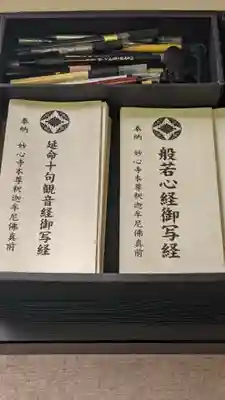 般若心経御写経
奉納 妙心寺本尊釈迦牟尼佛真前
延命十句観音経御写経
奉納 妙心寺本尊釈迦牟尼佛真前